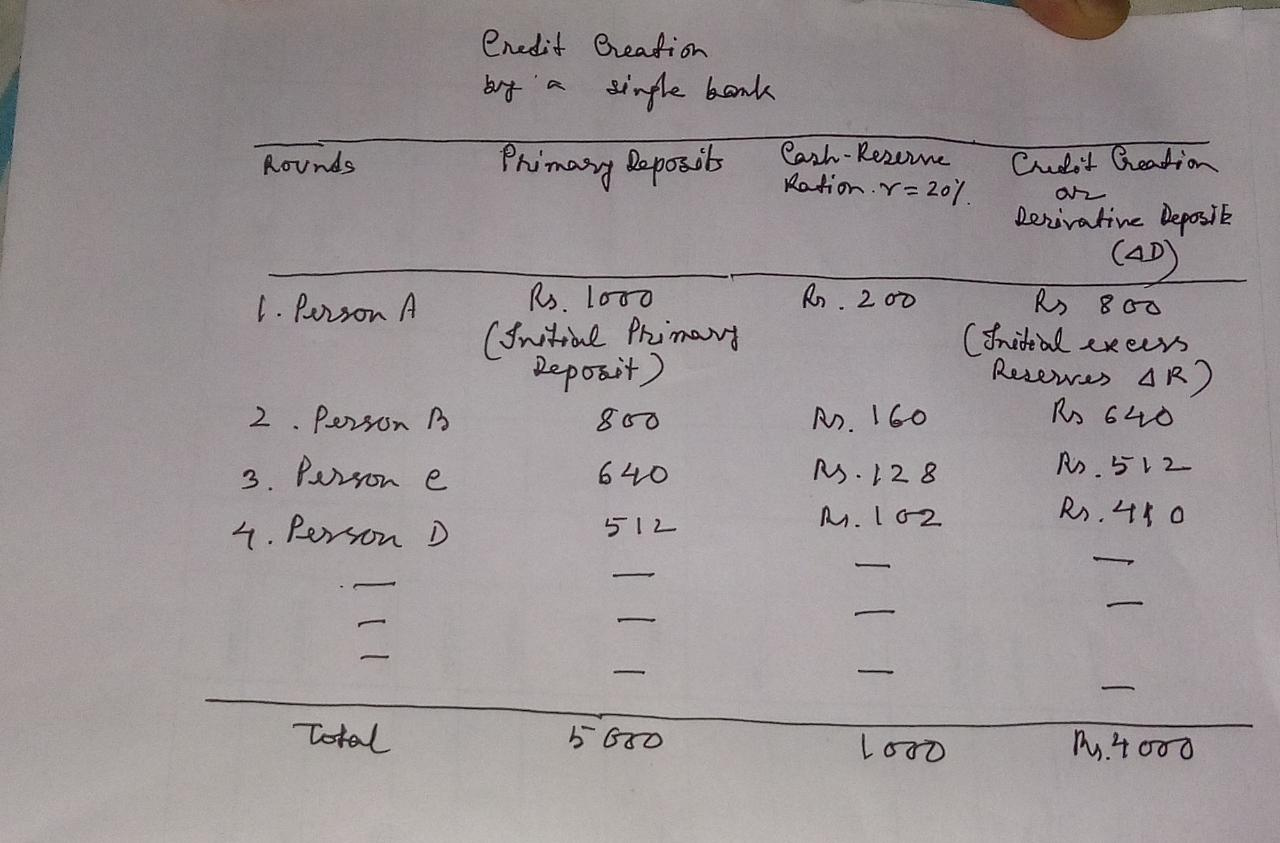 Credit Creation
by a single bank
Rounds Primary Deposits Cash-Reserve Ration. r = 20%. Credit Creation or Derivative Deposit (ΔD)
1. Person A Rs. 1000 (Initial Primary Deposit) Rs. 200 Rs 800 (Initial excess Reserves ΔR)
2. Person B 800 Rs. 160 Rs 640
3. Person C 640 Rs. 128 Rs. 512
4. Person D 512 Rs. 102 Rs. 410
Total 5000 1000 Rs. 4000